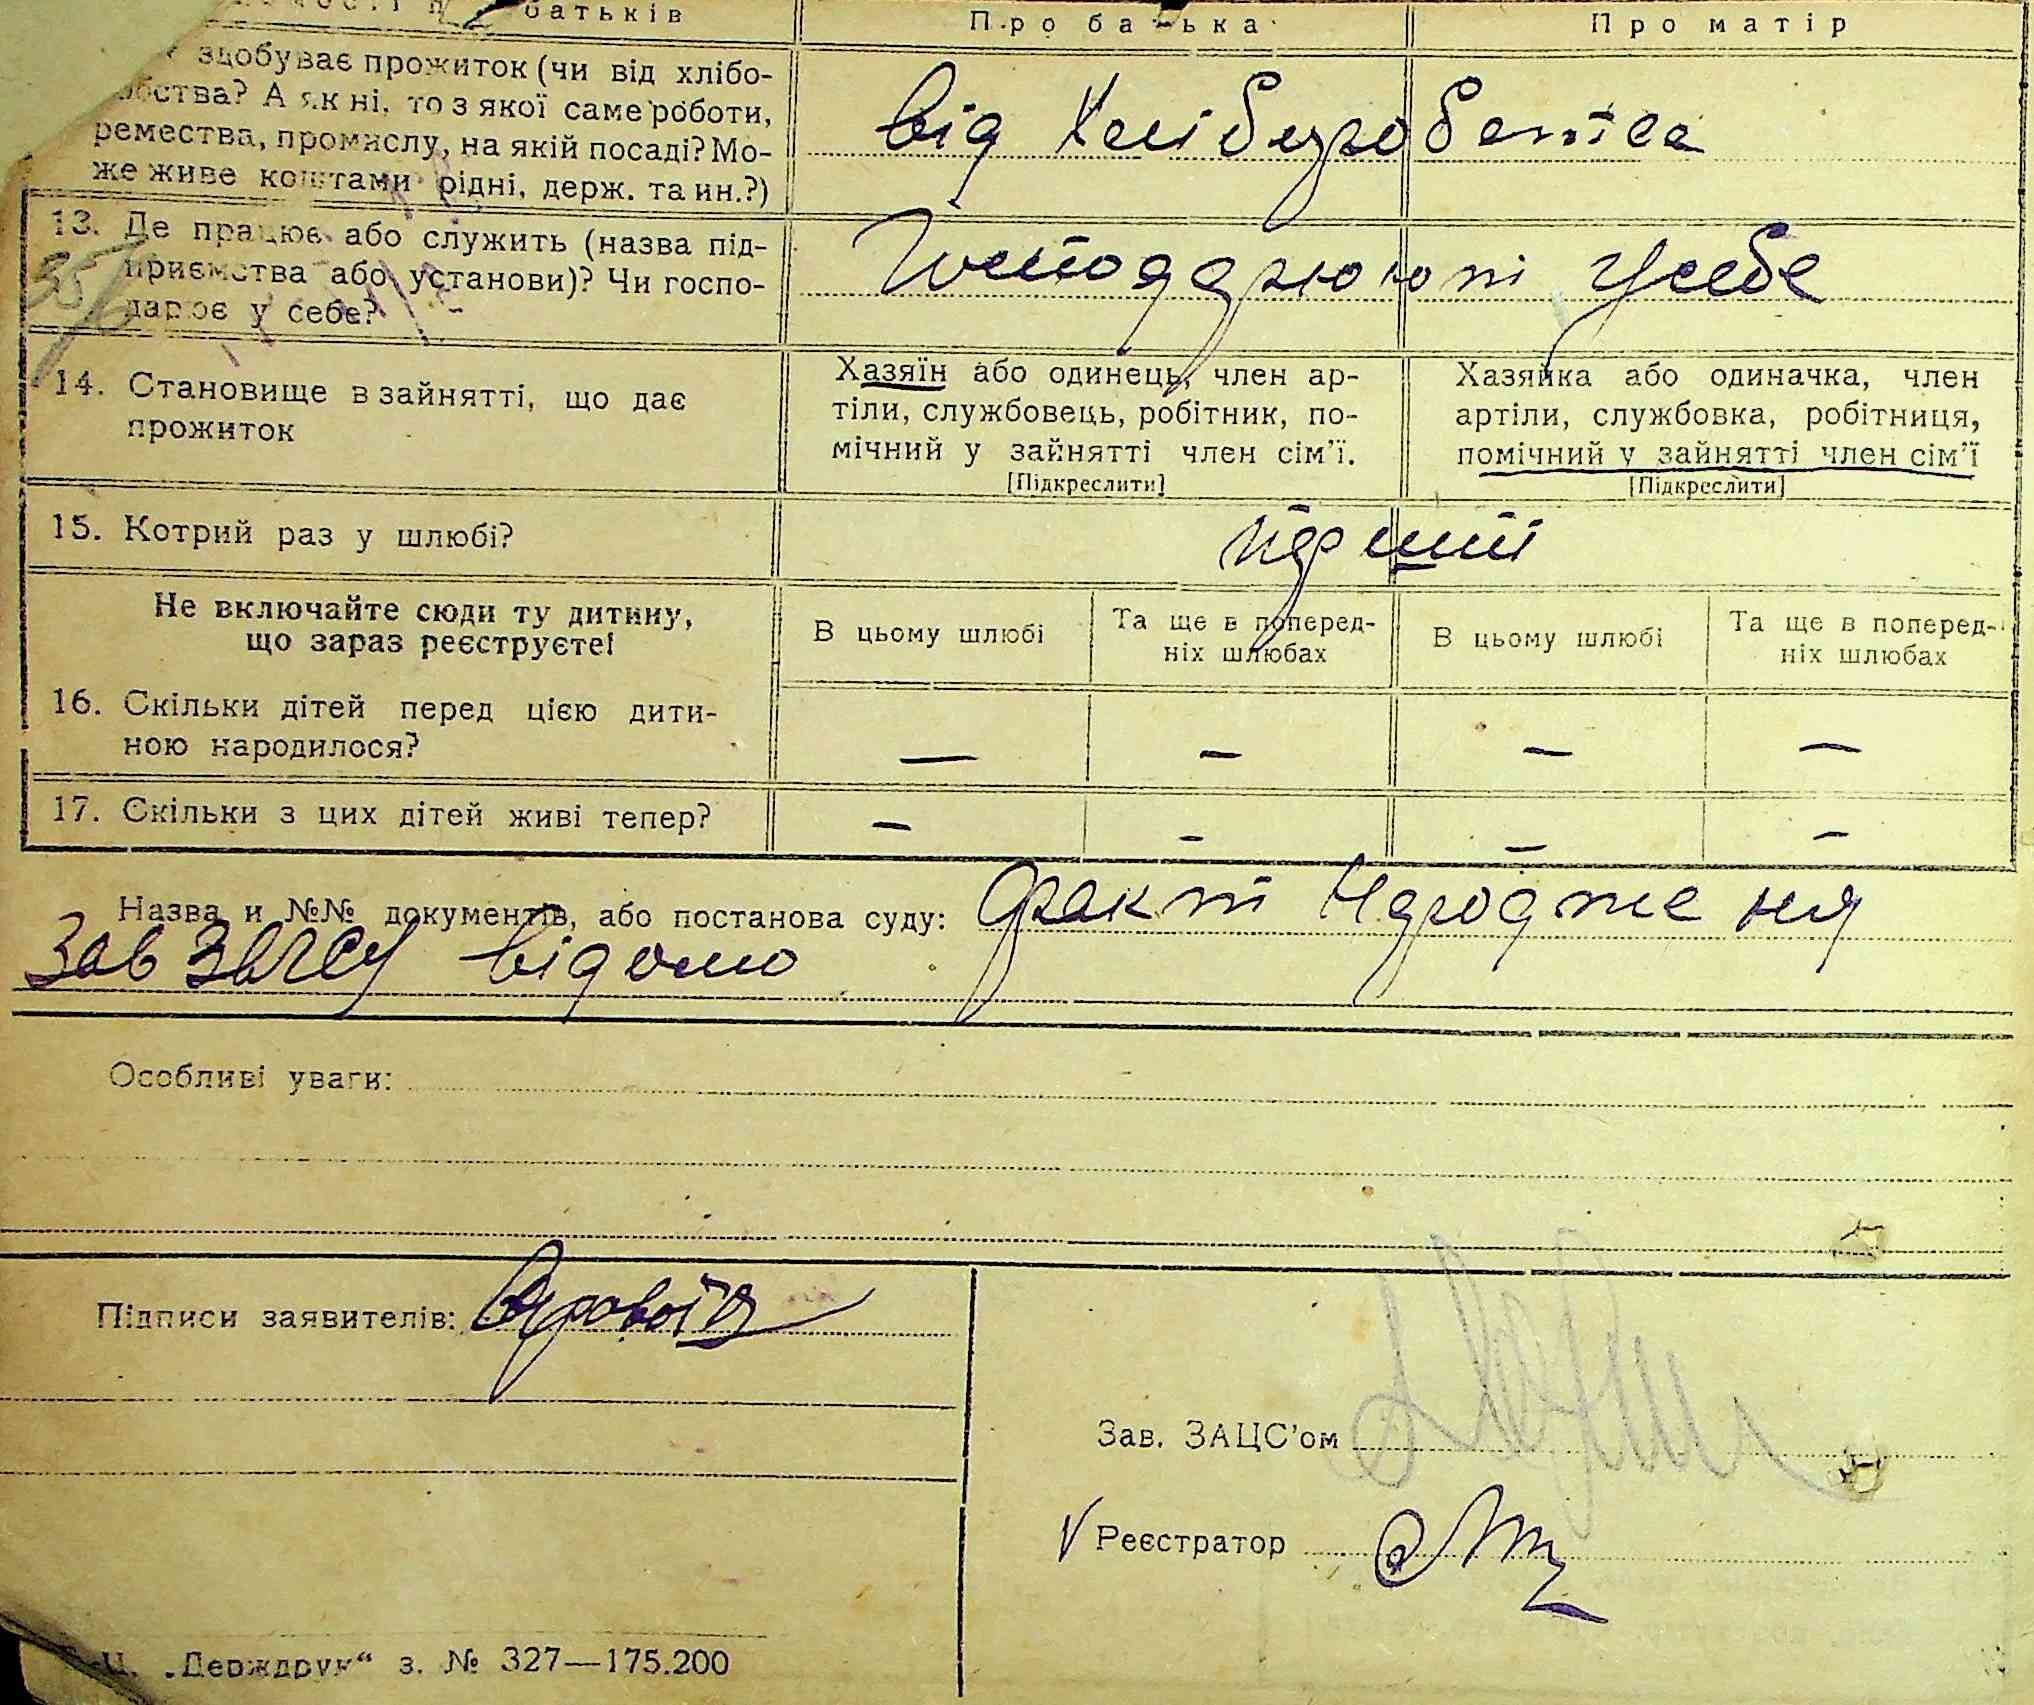 батьків Про батька Про матір
здобуває прожиток (чи від хлібо-
робства? А як ні, то з якої саме роботи,
ремества, промислу, на якій посаді? Мо-
же живе коштами рідні, держ. та ин.?)
від хліборобства
13. Де працює або служить (назва під-
приємства або установи)? Чи госпо-
дарює у себе?
господарюють у себе
14. Становище в зайнятті, що дає
прожиток
Хазяїн або одинець, член ар-
тіли, службовець, робітник, по-
мічний у зайнятті член сім'ї.
[Підкреслити]
Хазяйка або одиначка, член
артіли, службовка, робітниця,
помічний у зайнятті член сім'ї
[Підкреслити]
15. Котрий раз у шлюбі?
Не включайте сюди ту дитину,
що зараз реєструєте!
В цьому шлюбі
Та ще в поперед-
ніх шлюбах
В цьому шлюбі
Та ще в поперед-
ніх шлюбах
16. Скільки дітей перед цією дити-
ною народилося?
— — — —
17. Скільки з цих дітей живі тепер?
— — — —
Назва и №№ документів, або постанова суду: факт народження
Зав Загсу відомо
Особливі уваги:
Підписи заявителів:
Зав. ЗАЦС'ом
V Реєстратор
„Держдрук“ з. № 327—175.200